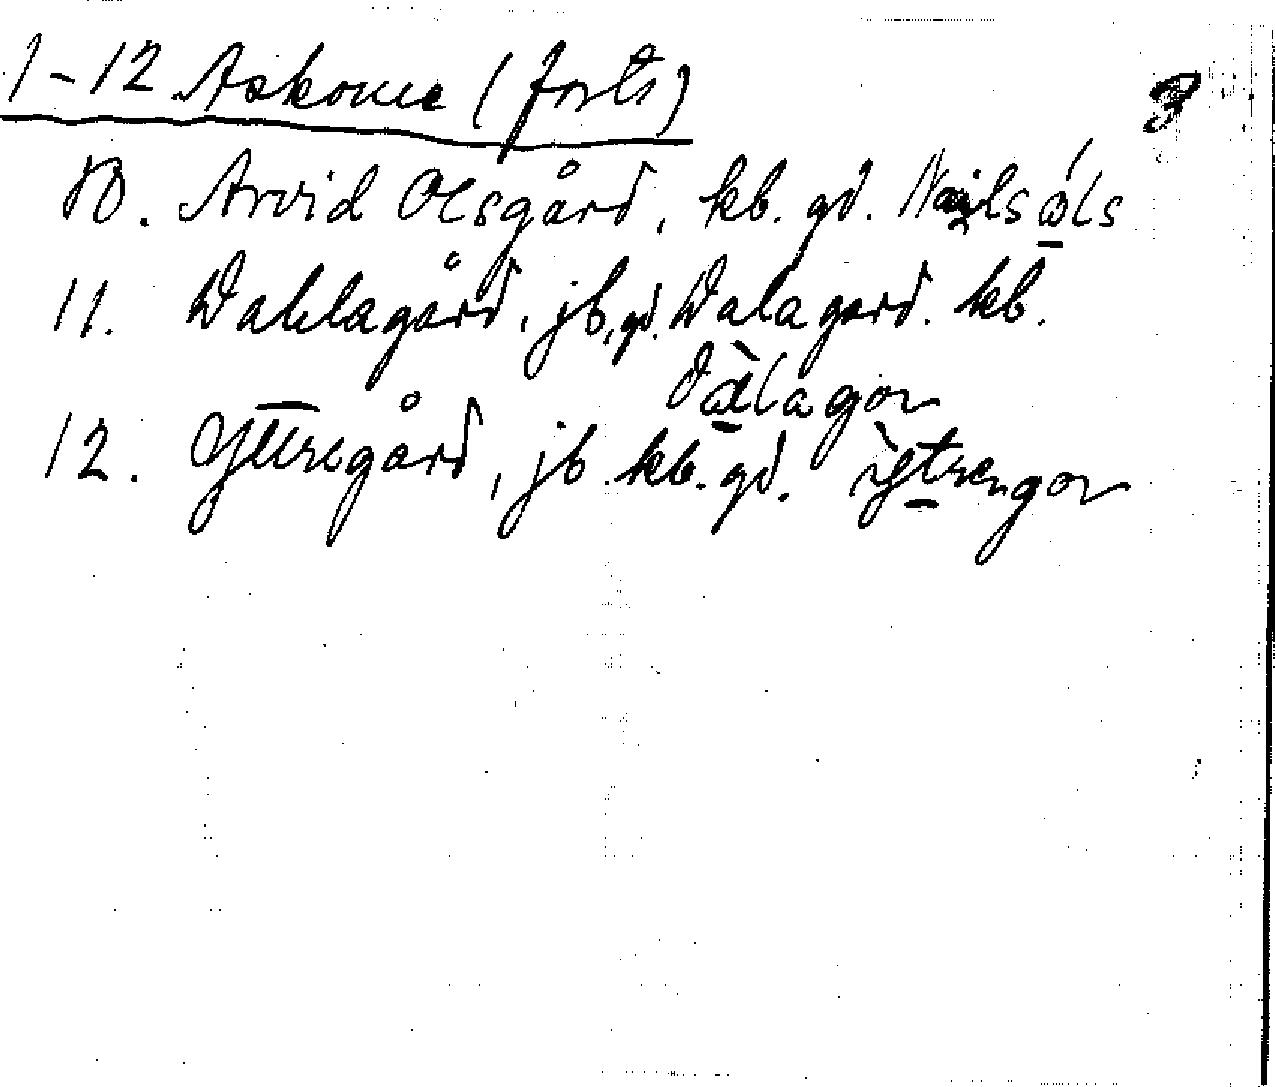 1-12 Askome (forts)
3
10. Arvid Olsgård, kb. gd. Nails ols
11. Dahlagård, jb, gd. Dalagård. kb.
dàlagor
12. Yttregård, jb kb. gd. ỳtrengor